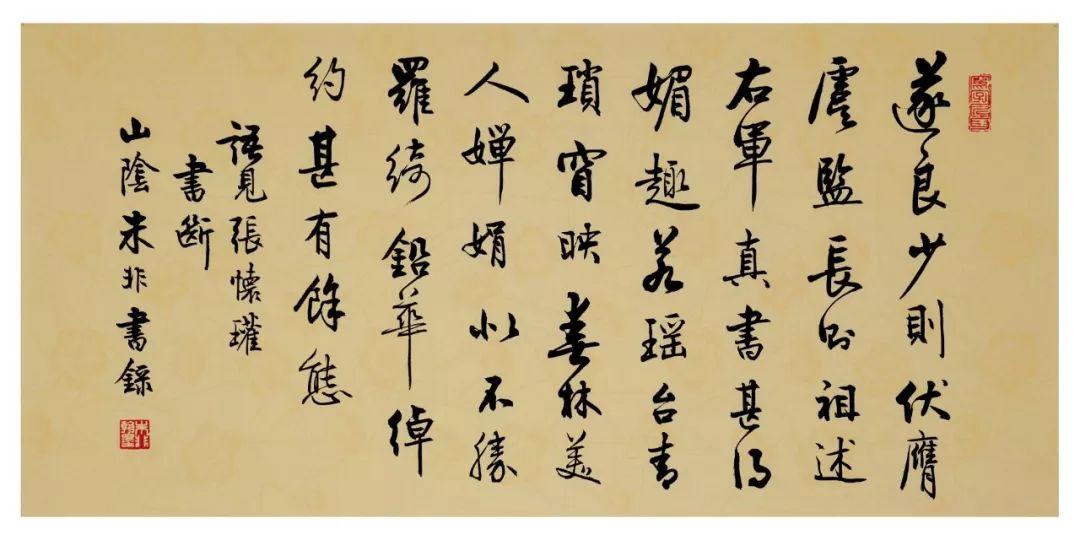 遂良少則伏膺
虞監長則祖述
右軍真書甚得
媚趣若瑶台青
瑣窅映春林美
人嬋娟似不勝
羅綺鉛華綽
約甚有餘態
語見張懷瓘
書斷
山陰朱非書錄
朱非翰墨